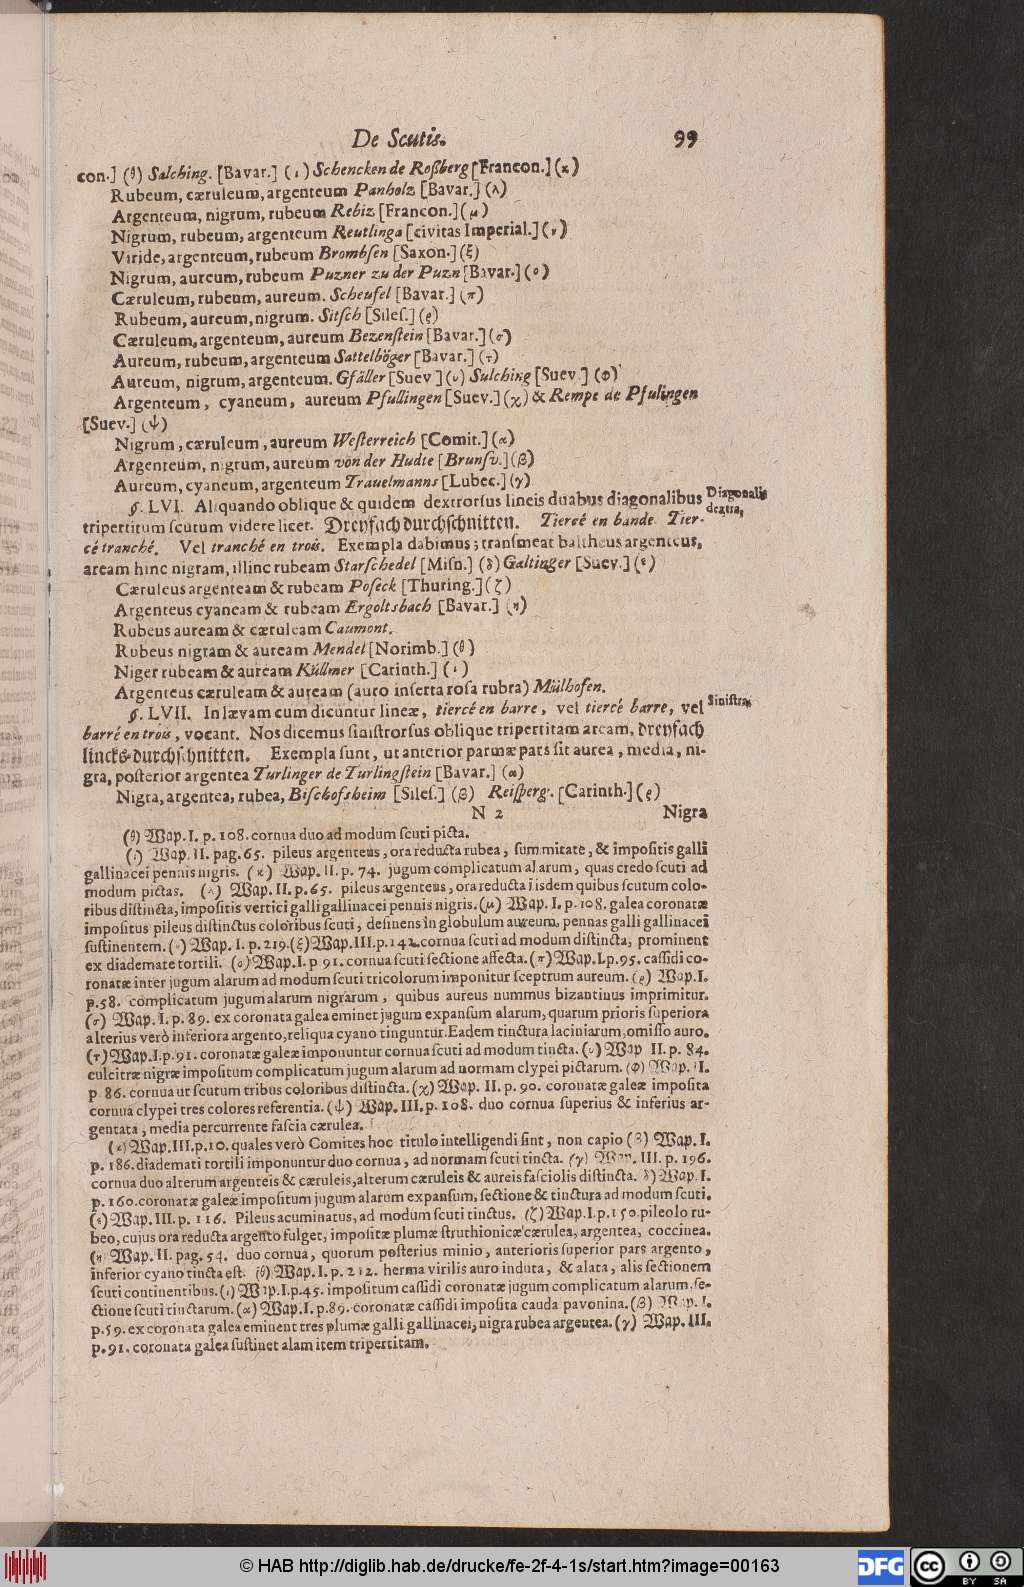 De Scutis. 99
con.] (θ) Salching. [Bavar.] (ι) Schencken de Roßberg [Francon.] (κ)
Rubeum, cæruleum, argenteum Panholz [Bavar.] (λ)
Argenteum, nigrum, rubeum Rebiz [Francon.] (μ)
Nigrum, rubeum, argenteum Reutlinga [civitas Imperial.] (ν)
Viride, argenteum, rubeum Brombſen [Saxon.] (ξ)
Nigrum, aureum, rubeum Puzner zu der Puzn [Bavar.] (ο)
Cæruleum, rubeum, aureum. Scheufel [Bavar.] (π)
Rubeum, aureum, nigrum. Sitſch [Sileſ.] (ϱ)
Cæruleum, argenteum, aureum Bezenſtein [Bavar.] (σ)
Aureum, rubeum, argenteum Sattelböger [Bavar.] (τ)
Aureum, nigrum, argenteum. Gfäller [Suev] (υ) Sulching [Suev.] (Φ)
Argenteum, cyaneum, aureum Pfullingen [Suev.] (χ) & Rempe de Pfulingen
[Suev.] (ψ)
Nigrum, cæruleum, aureum Weſterreich [Comit.] (α)
Argenteum, nigrum, aureum von der Hudte [Brunſv.] (β)
Aureum, cyaneum, argenteum Travelmanns [Lubec.] (γ)
§. LVI. Aliquando oblique & quidem dextrorſus lineis duabus diagonalibus Diagonalis
tripertitum ſcutum videre licet. Dreyfach durchſchnitten. Tiercé en bande. Tier- dextra,
cé tranché. Vel tranché en trois. Exempla dabimus; tranſmeat baltheus argenteus,
aream hinc nigram, illinc rubeam Starſchedel [Miſn.] (δ) Galtinger [Suev.] (ε)
Cæruleus argenteam & rubeam Poſeck [Thuring.] (ζ)
Argenteus cyaneam & rubeam Ergoltsbach [Bavar.] (η)
Rubeus auream & cæruleam Caumont.
Rubeus nigram & auream Mendel [Norimb.] (θ)
Niger rubeam & auream Küllmer [Carinth.] (ι)
Argenteus cæruleam & auream (auro inſerta roſa rubra) Mülhofen.
§. LVII. In lævam cum dicuntur lineæ, tiercé en barre, vel tiercé barre, vel Siniſtra,
barré en trois, vocant. Nos dicemus ſiniſtrorſus oblique tripertitam aream, dreyfach
lincks-durchſchnitten. Exempla ſunt, ut anterior parmæ pars ſit aurea, media, ni-
gra, poſterior argentea Turlinger de Turlingſtein [Bavar.] (α)
Nigra, argentea, rubea, Biſchofsheim [Sileſ.] (β) Reiſperg. [Carinth.] (ϱ)
N 2 Nigra
(θ) Wap. I. p. 108. cornua duo ad modum ſcuti picta.
(ι) Wap. II. pag. 65. pileus argenteus, ora reducta rubea, ſummitate, & impoſitis galli
gallinacei pennis nigris. (κ) Wap. II. p. 74. jugum complicatum alarum, quas credo ſcuti ad
modum pictas. (λ) Wap. II. p. 65. pileus argenteus, ora reducta iisdem quibus ſcutum colo-
ribus diſtincta, impoſitis vertici galli gallinacei pennis nigris. (μ) Wap. I. p. 108. galea coronatæ
impoſitus pileus diſtinctus coloribus ſcuti, deſinens in globulum aureum, pennas galli gallinacei
ſuſtinentem. (ν) Wap. I. p. 219. (ξ) Wap. III. p. 142. cornua ſcuti ad modum diſtincta, prominent
ex diademate tortili. (ο) Wap. I. p 91. cornua ſcuti ſectione affecta. (π) Wap. I. p. 95. caſſidi co-
ronatæ inter jugum alarum ad modum ſcuti tricolorum imponitur ſceptrum aureum. (ϱ) Wap. I.
p. 58. complicatum jugum alarum nigrarum, quibus aureus nummus bizantinus imprimitur.
(σ) Wap. I. p. 89. ex coronata galea eminet jugum expanſum alarum, quarum prioris ſuperiora
alterius verò inferiora argento, reliqua cyano tinguntur. Eadem tinctura laciniarum, omiſſo auro.
(τ) Wap. I. p. 91. coronatæ galeæ imponuntur cornua ſcuti ad modum tincta. (υ) Wap II. p. 84.
culcitræ nigræ impoſitum complicatum jugum alarum ad normam clypei pictarum. (Φ) Wap. II.
p. 86. cornua ut ſcutum tribus coloribus diſtincta. (χ) Wap. II. p. 90. coronatæ galeæ impoſita
cornua clypei tres colores referentia. (ψ) Wap. III. p. 108. duo cornua ſuperius & inferius ar-
gentata, media percurrente faſcia cærulea.
(α) Wap. III. p. 10. quales verò Comites hoc titulo intelligendi ſint, non capio (β) Wap. I.
p. 186. diademati tortili imponuntur duo cornua, ad normam ſcuti tincta. (γ) Wap. III. p. 196.
cornua duo alterum argenteis & cæruleis, alterum cæruleis & aureis faſciolis diſtincta. (δ) Wap. I.
p. 160. coronatæ galeæ impoſitum jugum alarum expanſum, ſectione & tinctura ad modum ſcuti.
(ε) Wap. III. p. 116. Pileus acuminatus, ad modum ſcuti tinctus. (ζ) Wap. I. p. 150. pileolo ru-
beo, cujus ora reducta argento fulget, impoſitæ plumæ ſtruthionicæ cærulea, argentea, coccinea.
(η) Wap. II. pag. 54. duo cornua, quorum poſterius minio, anterioris ſuperior pars argento,
inferior cyano tincta eſt. (θ) Wap. I. p. 212. herma virilis auro induta, & alata, alis ſectionem
ſcuti continentibus. (ι) Wap. I. p. 45. impoſitum caſſidi coronatæ jugum complicatum alarum, ſe-
ctione ſcuti tinctarum. (α) Wap. I. p. 89. coronatæ caſſidi impoſita cauda pavonina. (β) Wap. I.
p. 59. ex coronata galea eminent tres plumæ galli gallinacei, nigra rubea argentea. (γ) Wap. III.
p. 91. coronata galea ſuſtinet alam item tripertitam.
© HAB http://diglib.hab.de/drucke/fe-2f-4-1s/start.htm?image=00163
DFG
cc BY SA